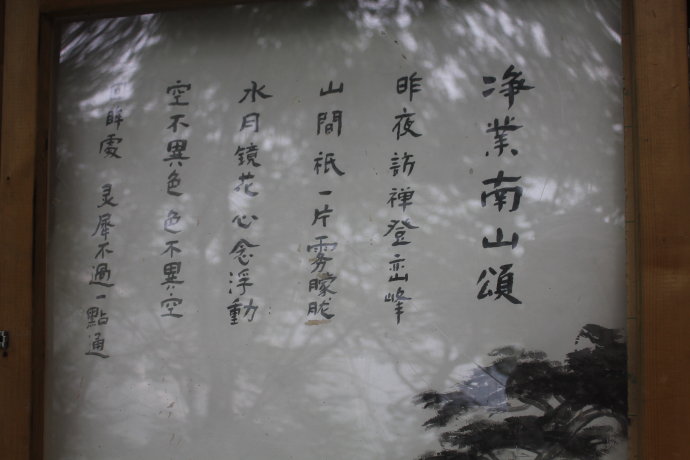 净業南山頌
昨夜訪禅登峦峰
山間祇一片雾朦胧
水月镜花 心念浮動
空不異色 色不異空
回眸處 灵犀不過一點通